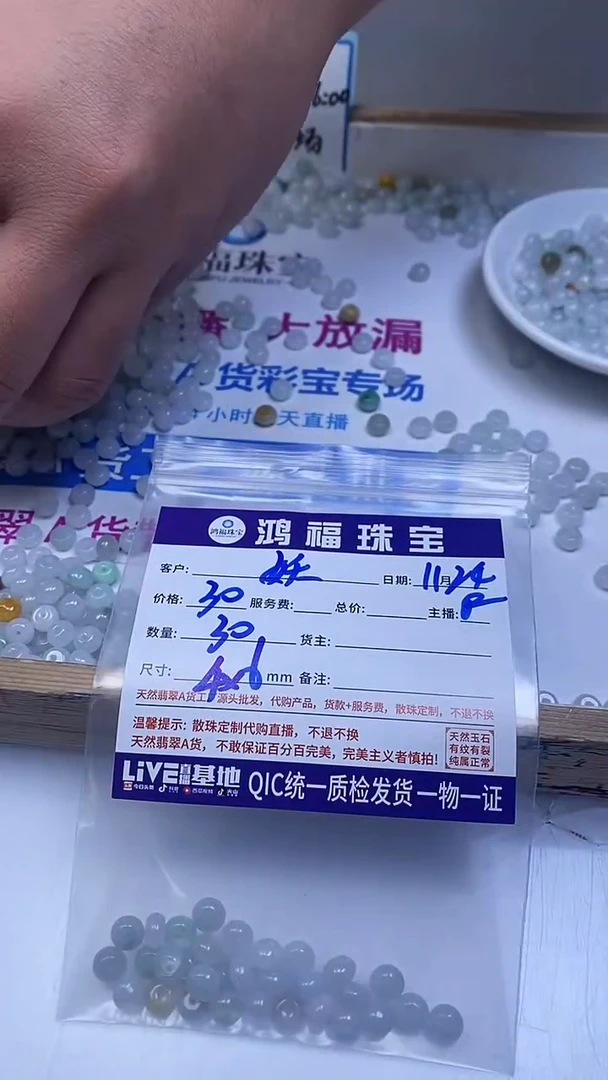 6:00
福珠宝
上放漏
A货彩宝专场
小时 天直播
鸿福珠宝
客户: 日期: 11月24
价格: 30 服务费: 总价: 主播:
数量: 30 货主:
尺寸: mm 备注:
天然翡翠A货工厂源头批发，代购产品，货款+服务费，散珠定制，不退不换
温馨提示: 散珠定制代购直播，不退不换
天然翡翠A货，不敢保证百分百完美，完美主义者慎拍!
天然玉石
有纹有裂
纯属正常
LiVE直播基地 QIC统一质检发货 一物一证
今日头条 抖音 西瓜视频